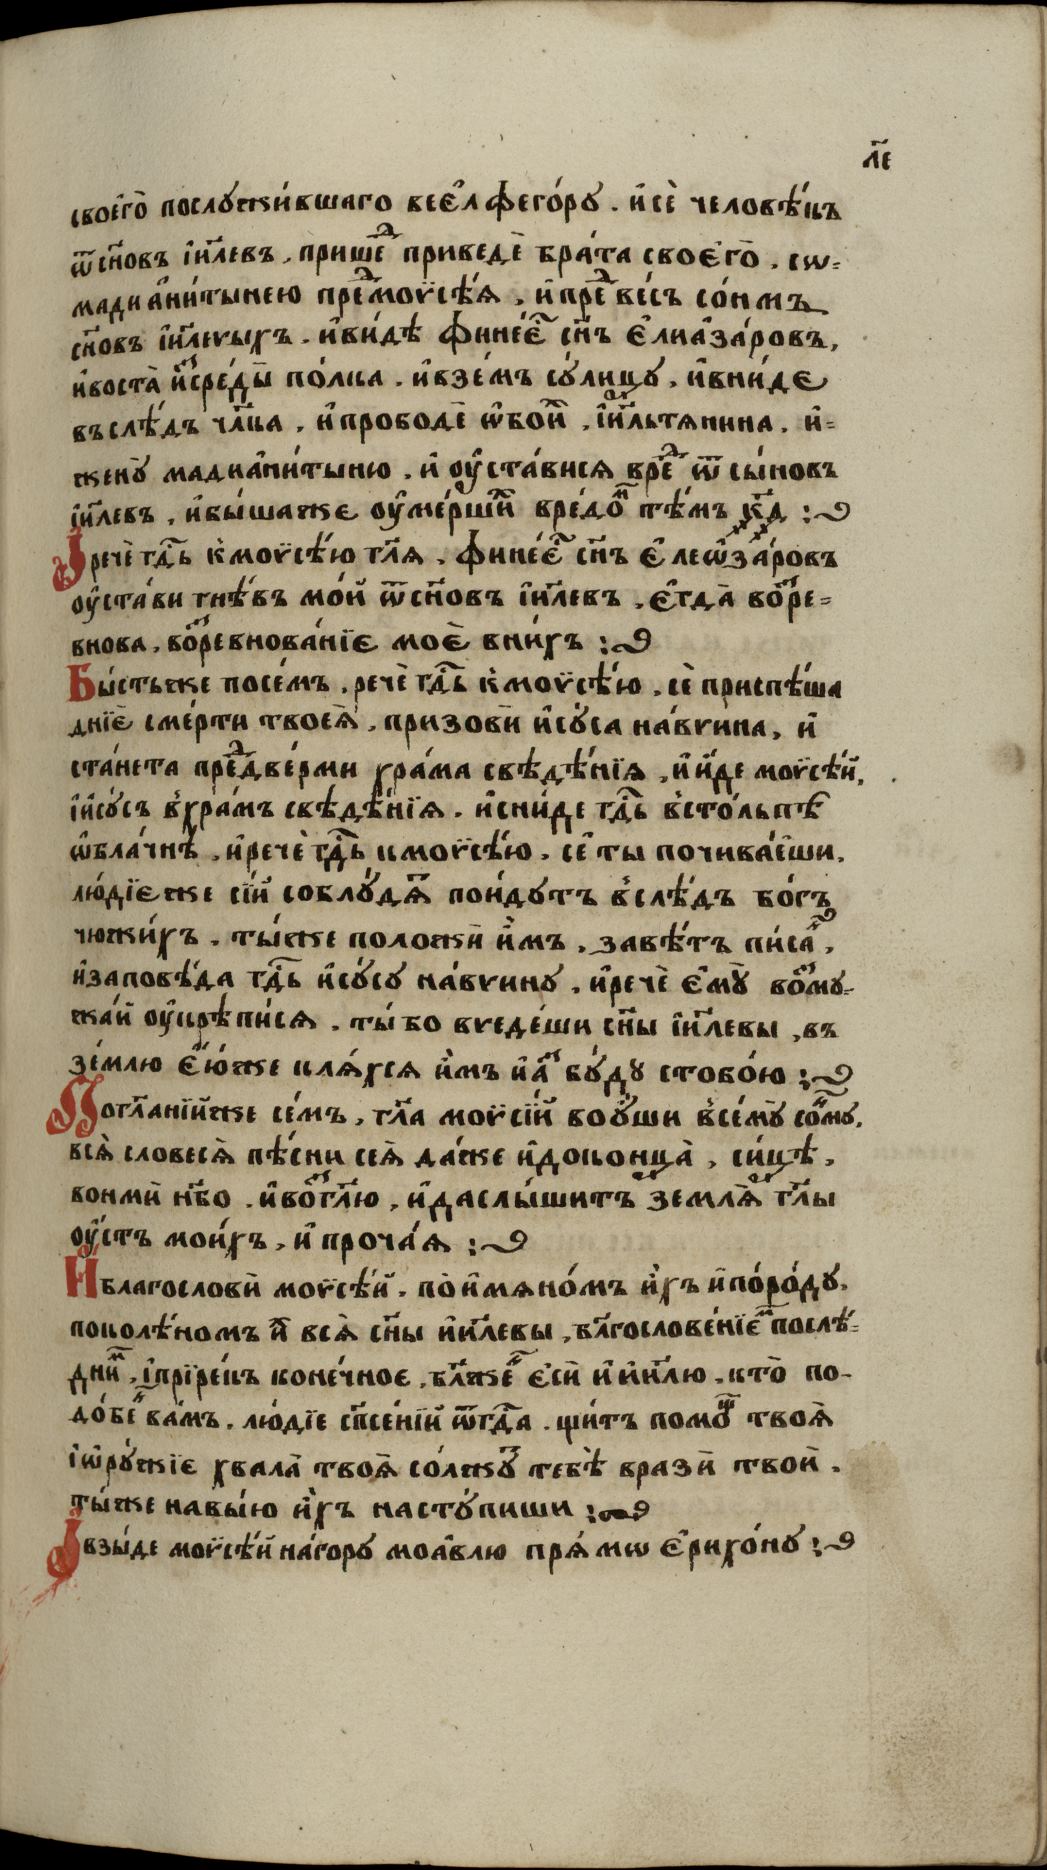 л҃е
своегѡ̀ послꙋжи́вшаго веелфего́рꙋ . и҆ сѐ человѣ́къ
ѿ сн҃овъ і҆и҃левъ , прише́д приведѐ бра́та своегѡ̀ . сѡ=
мадиа҆ни́тынею пред моѷсѣ́ѧ , и҆ пред ве́сь со́нмъ
сн҃овъ і҆и҃левыхъ . и҆ ви́дѣ финее́с сн҃ъ є҆лиа҆за́ровъ ,
и҆ воста̀ и҆з среды̀ по́лка . и҆ взе́мъ сꙋ́лицꙋ , и҆ вни́де
въ слѣ́дъ чл҃ка , и҆ прободѐ ѡ҆бои́х , і҆и҃льтѧнина , и҆=
женꙋ̀ мадиа҆ни́тыню , и҆ ᲂу҆ста́висѧ вре́д ѿ сы́новъ
і҆и҃левъ , и҆ бы́ша же ᲂу҆ме́рших вредо́м тѣ́мъ к҃д :
І речѐ гд҇ь к̾ моѷсѣ́ю гл҃ѧ , финее́с сн҃ъ є҆леѡ҆за́ровъ
ᲂу҆ста́ви гнѣ́въ мо́й ѿ сн҃овъ і҆и҃левъ , є҆гда̀ возре=
внова , возревнова́нїе моѐ в ни́хъ :
Бы́сть же посе́мъ , речѐ гд҇ь к̾ моѷсѣ́ю , сѐ приспѣ́ша
дни́е сме́рти твоеѧ̀ , призовѝ и҆сꙋ́са на́вгина , и҆
ста́нета пред две́рми хра́ма свѣдѣ́нїѧ , и҆ и́де моѷсѣ́й ,
і҆ и҆сꙋ́съ в̾ хра́мъ свѣдѣ́нїѧ . и҆ сни́де гд҇ь в̾ сто́льпѣ
ѡ҆бла́чнѣ , и҆ речѐ гд҇ь к моѷсѣ́ю . сѐ ты почива́еши .
лю́дїе же сїи́ соблꙋ́дѧт пои́дꙋтъ в̾ слѣ́дъ бо́гъ
чюжи́хъ . ты́ же положѝ и҆̀мъ , завѣ́тъ пи́сан ,
и҆ заповѣ́да гд҇ь и҆сꙋ́сꙋ на́вгинꙋ , и҆ речѐ є҆мꙋ̀ возмꙋ=
жа́й ᲂу҆крѣпи́сѧ . ты́ бо введе́ши сн҃ы і҆и҃левы , въ
зе́млю є҆́юже клѧ́хсѧ и҆̀мъ и҆ а҆з бꙋ́дꙋ с тобо́ю :
По гл҃анїи́ же се́мъ , гл҃а моѷсїи́ во ᲂу҆́ши в̾семꙋ̀ со́нмꙋ ,
всѧ̀ словеса̀ пѣ́сни сеѧ̀ да́же и҆ до конца̀ , си́це ,
вонмѝ н҃бо . и҆ возгл҃ю , и҆ да слы́шитъ землѧ̀ гл҃ы
ᲂу҆́стъ мои́хъ , и҆ про́чаѧ :
И҆ благословѝ моѷсе́й . по и҆мѧно́мъ и҆́хъ и҆ по ро́дꙋ .
по колѣ́номъ и҆х всѧ̀ сн҃ы и҆и҃левы , бл҃гослове́нїем послѣ́=
дним , і҆ прїре́къ коне́чное , бл҃же́н є҆сѝ и҆ и҆и҃лю . кто̀ по-
до́бен ва́мъ . лю́дїе сп҃се́нїи ѿ гд҇а . щи́тъ помо́щ твоѧ̀
і҆ ѡ҆рꙋ́жїе хвала̀ твоѧ̀ со́лжꙋт тебѣ̀ вразѝ твоѝ .
ты́ же на вы́ю и҆́хъ настꙋ́пиши :
І взы́де моѷсе́й на́ горꙋ моа҆́влю прѧ́мѡ є҆рихо́нꙋ :